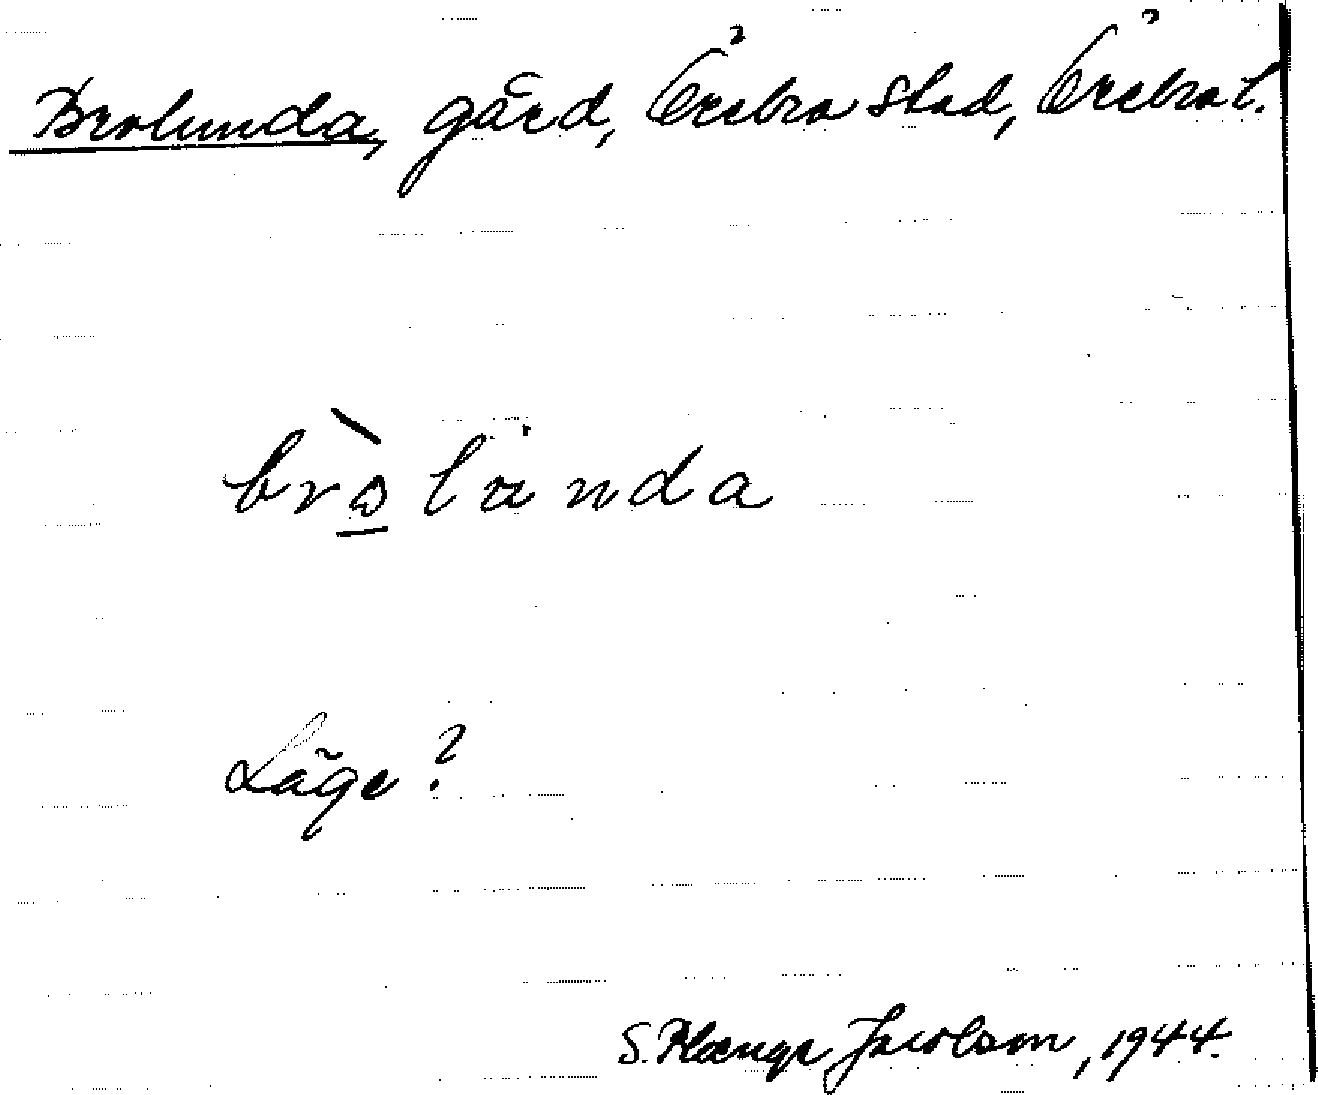 Brolunda, gård, Örebro stad, Örebro l.
bròlunda
Läge?
S. Plænge Jacobson, 1944.